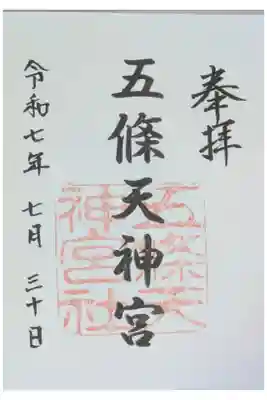 奉拝
五條天神宮
五条天
神宮社
令和七年 七月 三十日